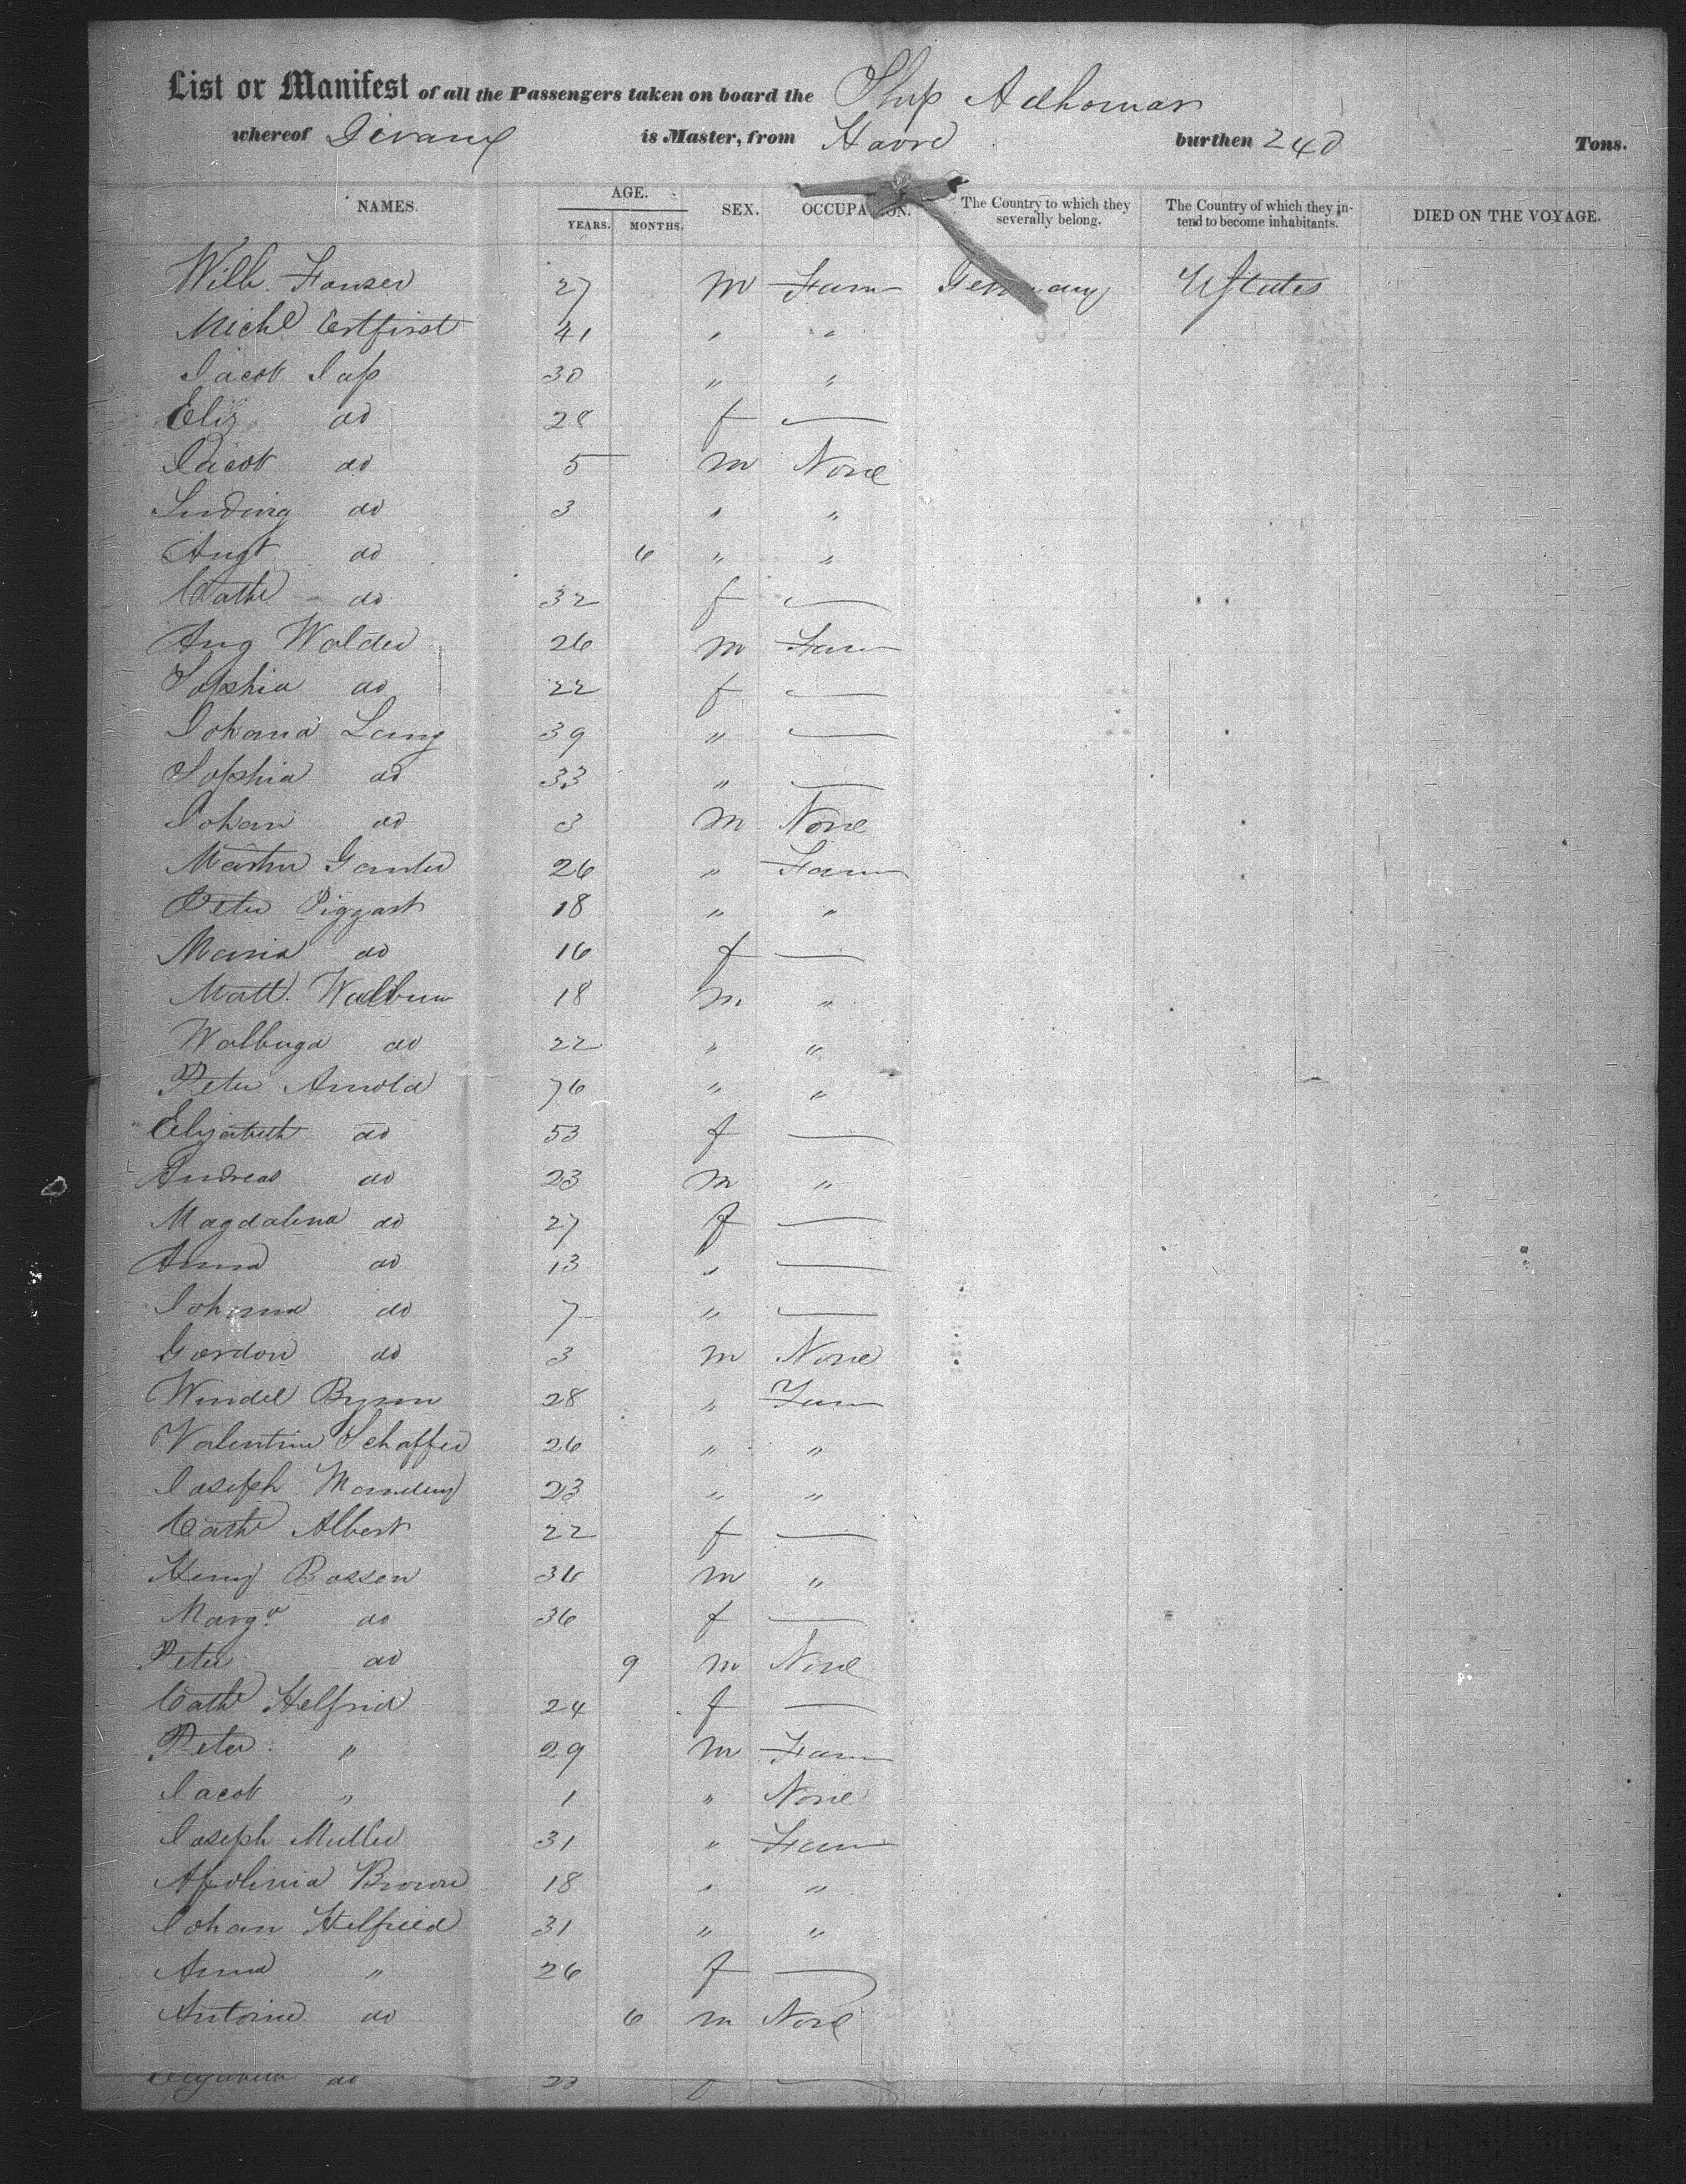 List or Manifest of all the Passengers taken on board the Ship Adhomar
whereof is Master, from Havre burthen 240 Tons.
NAMES. AGE. YEARS. MONTHS. SEX. OCCUPATION. The Country to which they severally belong. The Country of which they intend to become inhabitants. DIED ON THE VOYAGE.
Wilh. Fauser 27 m Farm Germany UStates
Michl 41 " "
Jacob 30 " "
Eliz do 28 f —
Jacob do 5 m None
Ludwig do 3 " "
Augt do 6 " "
Cathe do 32 f —
Aug Walder 26 m Farm
Sophia do 22 f —
Johana Lang 39 " —
Sophia do 33 " —
Johan do 3 m None
Martin Ganter 26 " Farm
Peter Piggart 18 " "
Maria do 16 f —
Matt. 18 m "
Walbuga do 22 " "
Peter Arnold 76 " "
Elizabeth do 53 f —
Andreas do 23 m "
Magdalena do 27 f —
Anna do 13 " —
Johanna do 7 " —
Gordon do 3 m None
Windel 28 " Farm
Valentin Schaffer 26 " "
Joseph 23 " "
Cathe Albert 22 f —
Henry Bossen 36 m "
Marga do 36 f —
Peter do 9 m None
Cathe Helfrid 24 f —
Peter " 29 m Farm
Jacob " 1 " None
Joseph Muller 31 " Farm
Apolinia Brown 18 " "
Johan Helfried 31 " "
Anna " 26 f —
Antoine do 6 m None
do